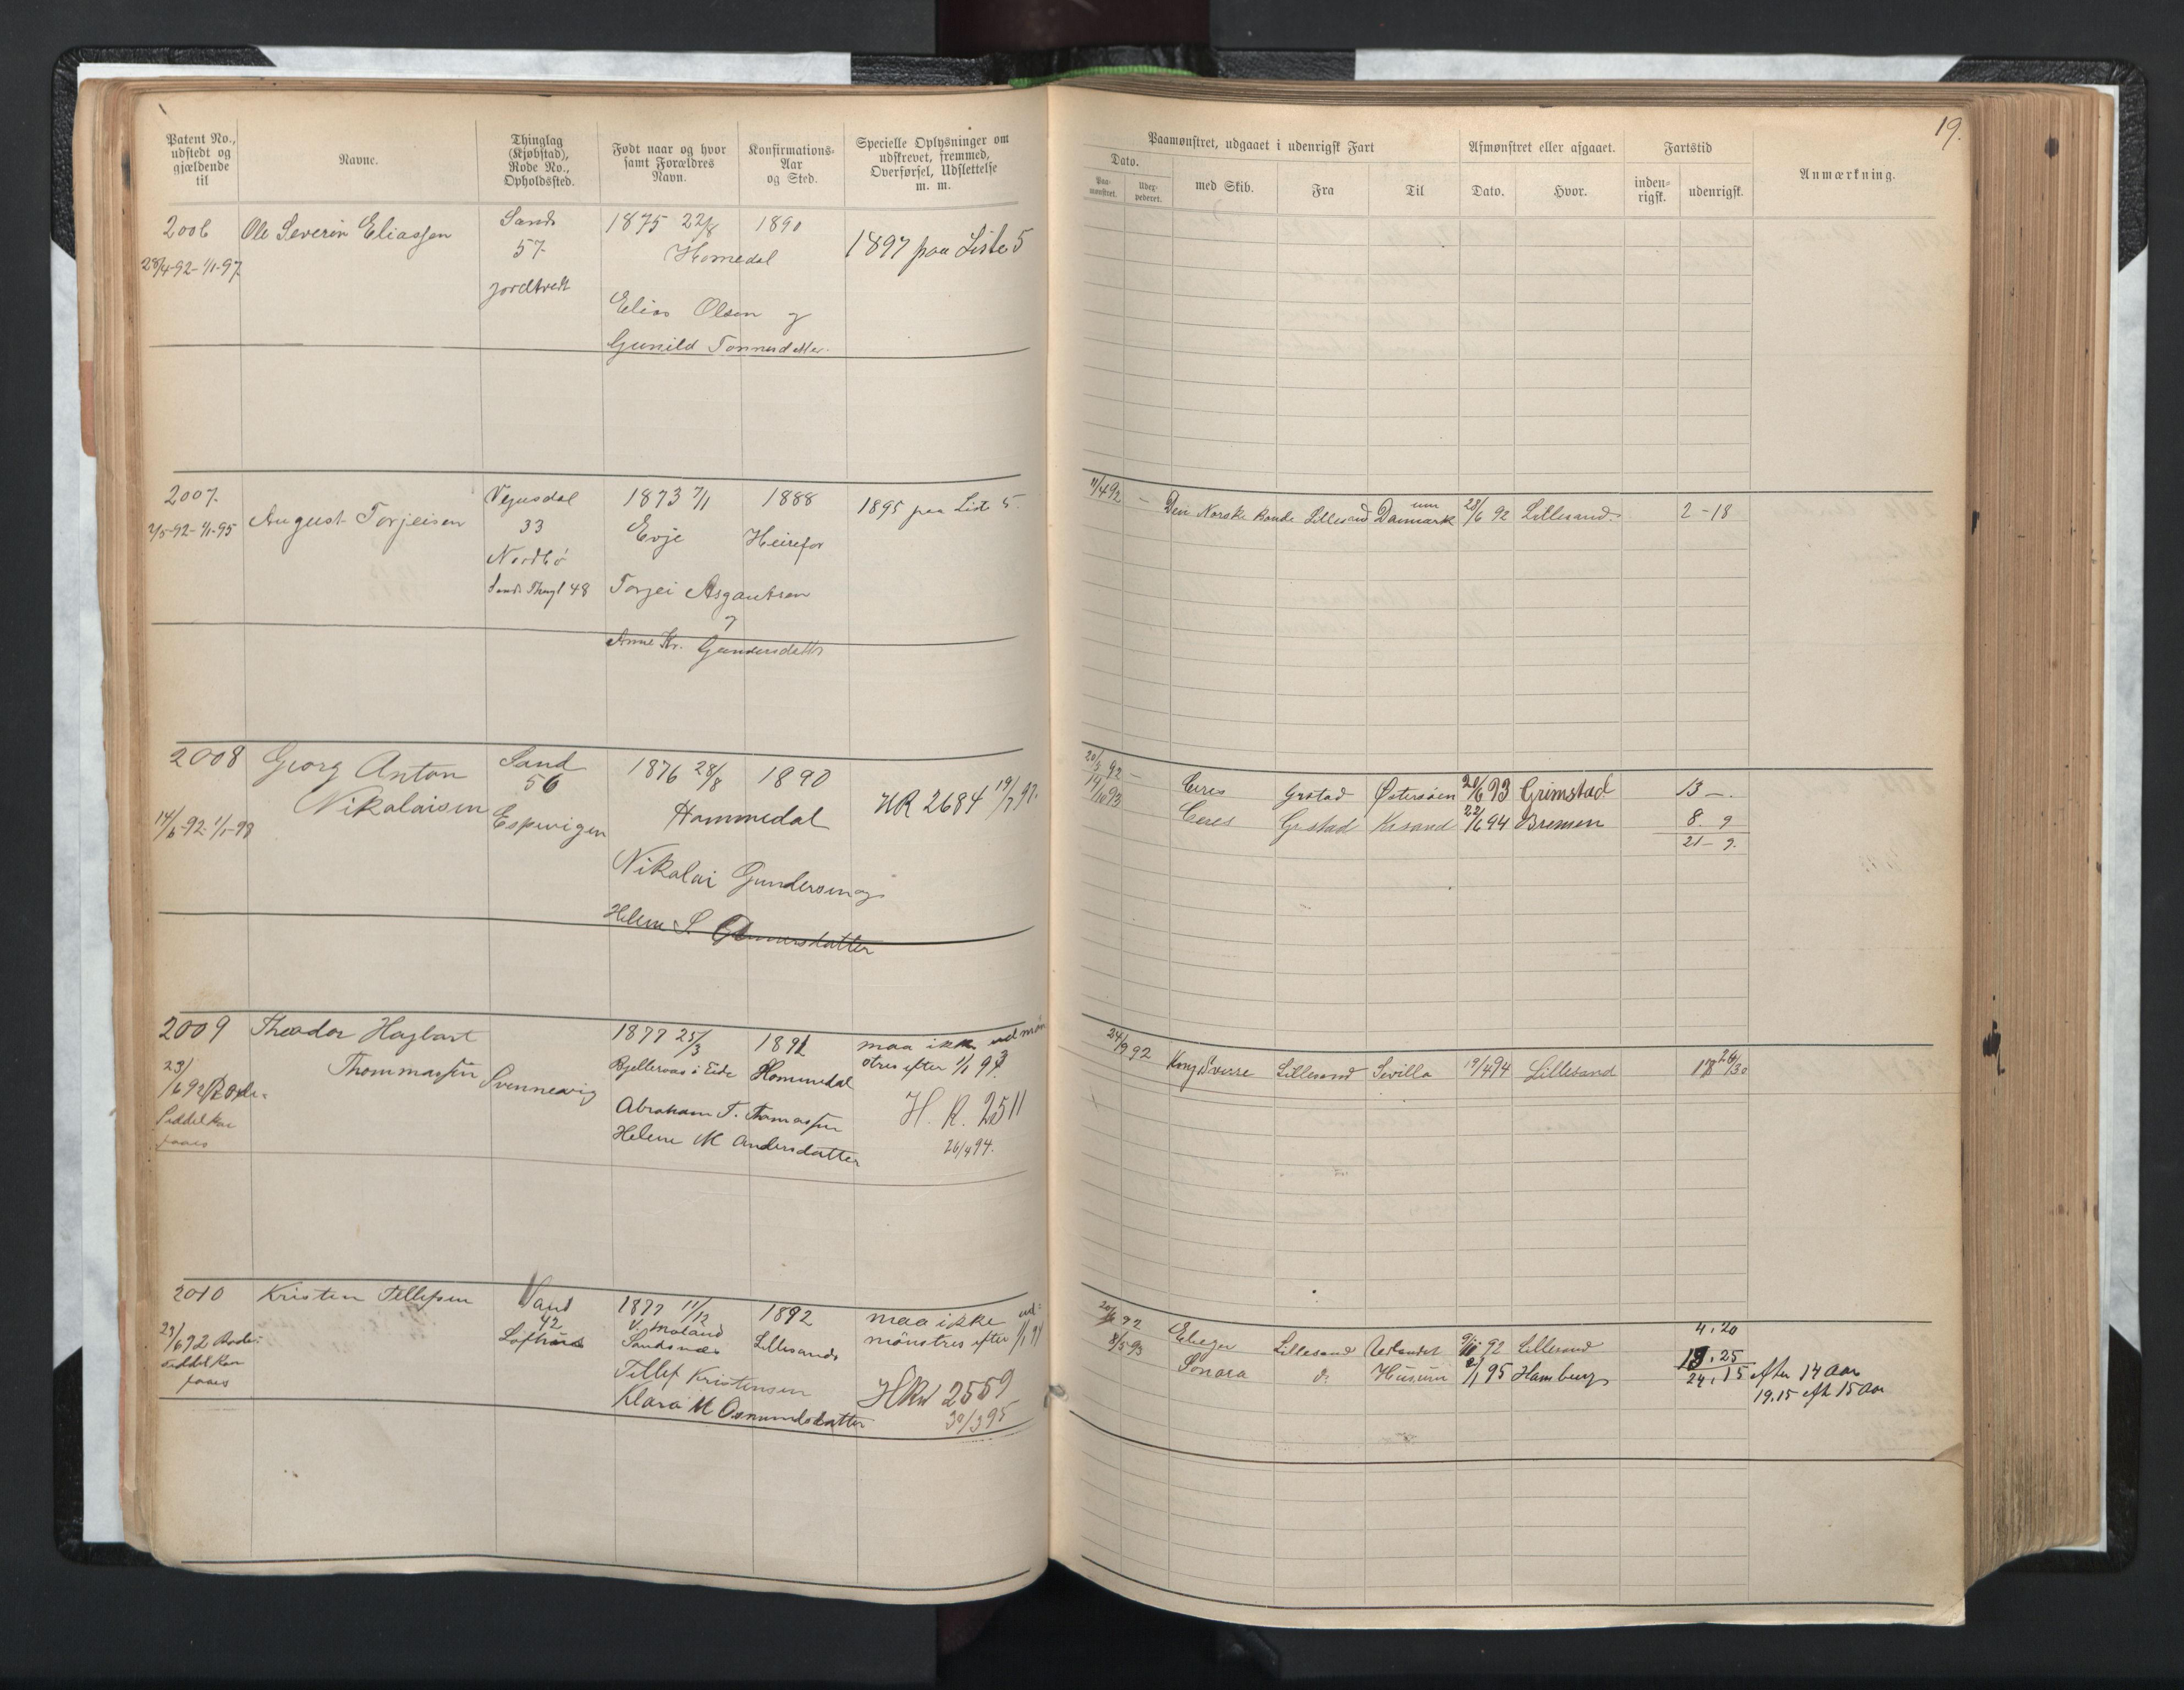 Patent No., udstedt og gjældende til
Navne.
Thinglag (Kjøbstad), Rode No., Opholdssted.
Født naar og hvor samt Forældres Navn.
Konfirmations-Aar og Sted.
Specielle Oplysninger om udskrevet, fremmed, Overførsel, Udslettelse m. m.
2006
28/4-92-1/1-97
Ole Severin Eliassen
Sands
57
1875 22/8
1890
Homedal
Elias Olsen og
1897 paa Liste 5
2007.
2/5-92-1/1-95
August Torjeisen
Vejusdal
33
Nordbö
Sands Thingl 48
1873 7/1
Evje
1888
Torjei Asgautsen
Anne Kr. Gundersdatter
1895 paa Liste 5.
2008
14/6-92-1/1-98
Georg Anton
Nikolaisen
Sand
56
Espevigen
1876 28/8
1890
Hommedal
Nikolai Gundersen og
Helene S.
HR 2684 19/7 97
2009
23/6 92 Rode-
Seddel kan
faaes
Theodor Hagbart
Thommassen
Svennevig
1877 25/3
1892
Hommedal
Abraham T. Thomassen
Helene M Andersdatter
maa ikke udmön
stres efter 1/1 93
H. R. 2511
26/4 94.
2010
23/6 92 Rode-
seddel kan
faaes
Kristen Tellefsen
42
Lofthus
1877 11/12
V. Moland
Sandsnæs
1892
Lillesands
Tellef Kristensen
Klara M Osmundsdatter
maa ikke ud-
mönstres efter 1/1 94
HRul 2559
30/3 95
19.
Paamønstret, udgaaet i udenrigsk Fart
Afmønstret eller afgaaet.
Fartstid
Anmærkning.
Dato.
Paa-mønstret.
Udex-pederet.
med Skib.
Fra
Til
Dato.
Hvor.
inden-rigsk.
udenrigsk.
11/4 92 – Den Norske Bonde Lillesand Danmark 28/6 92 Lillesand. 2-18
20/5 92 – Ceres Grstad Østersøen 20/6 93 Grimstad 13 –
14/10 93 Ceres Grstad Krsand 22/6 94 Bremen 8. 9
21 – 9.
24/9 92 Kong Sverre Lillesand Sevilla 19/4 94 Lillesand 18 26/30
20/6 92 Lillesand Udlandet 92 Lillesand 4.20
8/5 93 Sonora do. Husum 2/1 95 Hamburg 19.25
24.15 efter 14 Aar
19.15 eft 15 Aar